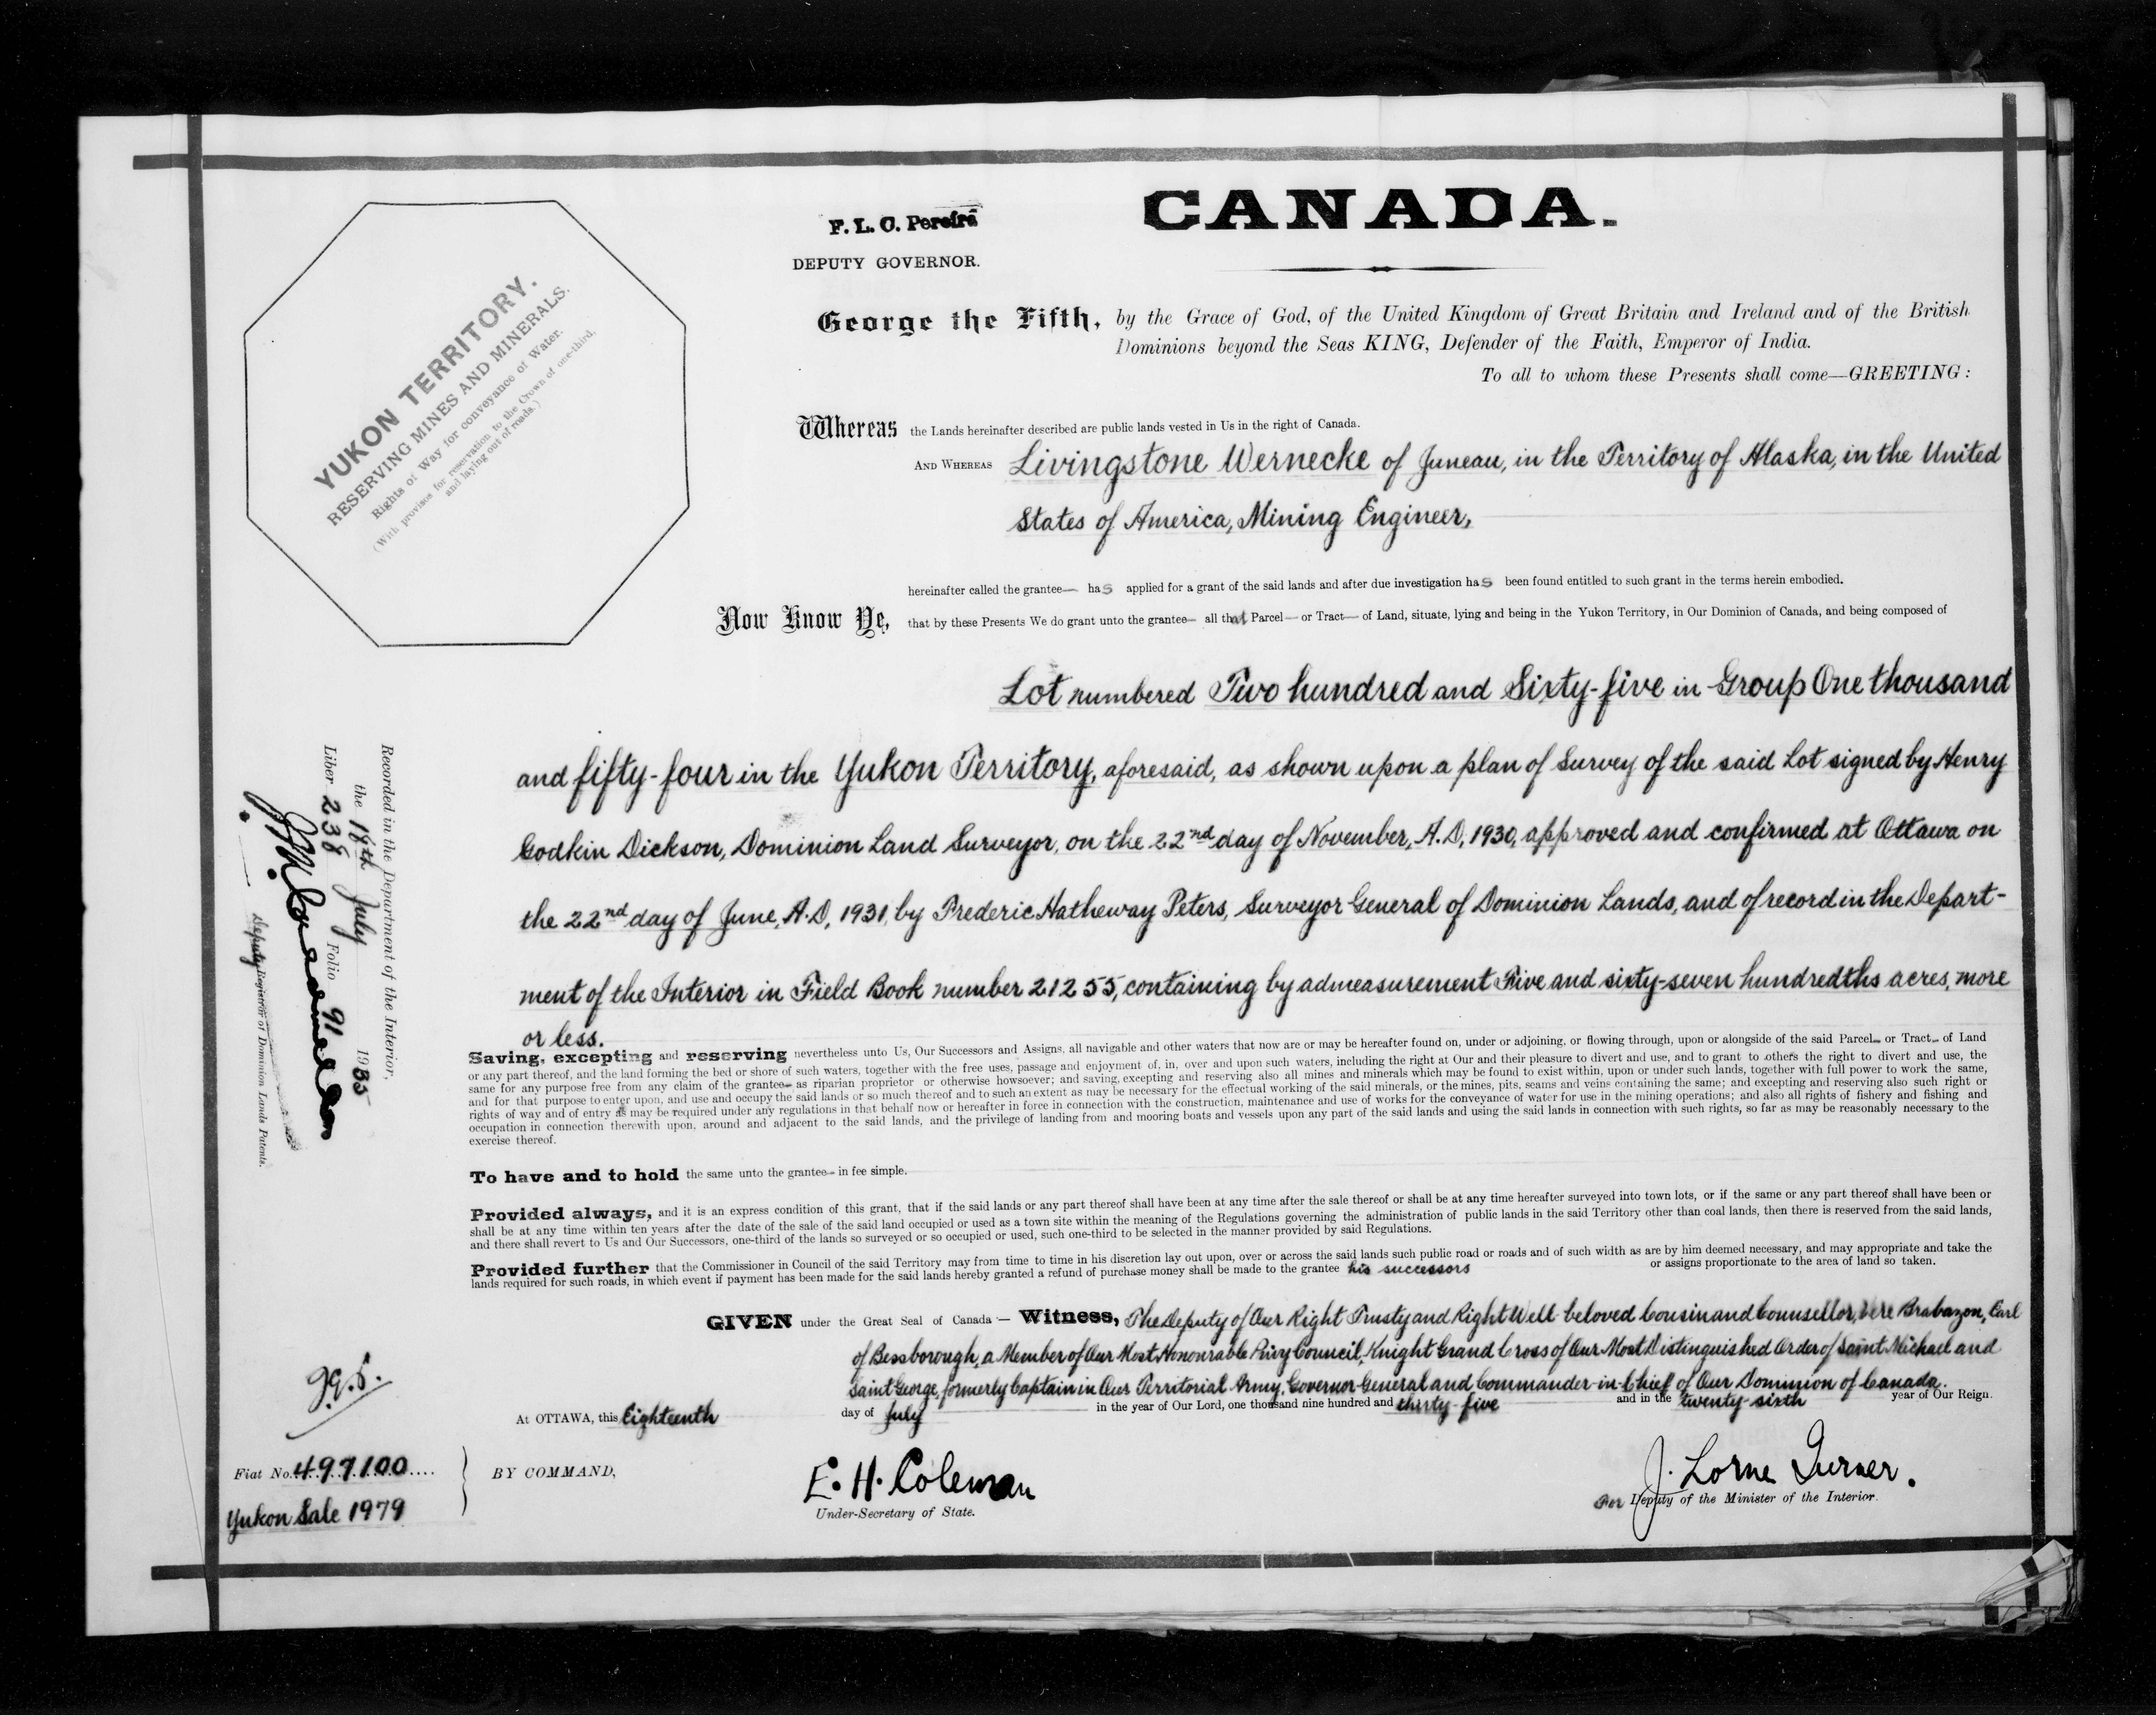 CANADA.
F. L. C. Pereira
DEPUTY GOVERNOR.
YUKON TERRITORY.
RESERVING MINES AND MINERALS.
Rights of Way for conveyance of Water.
(With provisos for reservation to the Crown of one-third,
and laying out of roads.)
George the Fifth, by the Grace of God, of the United Kingdom of Great Britain and Ireland and of the British
Dominions beyond the Seas KING, Defender of the Faith, Emperor of India.
To all to whom these Presents shall come—GREETING:
Whereas the Lands hereinafter described are public lands vested in Us in the right of Canada.
AND WHEREAS Livingstone Wernecke of Juneau, in the Territory of Alaska, in the United
States of America, Mining Engineer,
hereinafter called the grantee— has applied for a grant of the said lands and after due investigation has been found entitled to such grant in the terms herein embodied.
Now Know Ye, that by these Presents We do grant unto the grantee— all that Parcel— or Tract— of Land, situate, lying and being in the Yukon Territory, in Our Dominion of Canada, and being composed of
Lot numbered Two hundred and Sixty-five in Group One thousand
and fifty-four in the Yukon Territory, aforesaid, as shown upon a plan of Survey of the said Lot signed by Henry
Godkin Dickson, Dominion Land Surveyor, on the 22nd day of November, A.D, 1930, approved and confirmed at Ottawa on
the 22nd day of June, A.D, 1931, by Frederic Hatheway Peters, Surveyor General of Dominion Lands, and of record in the Depart-
ment of the Interior in Field Book number 21255, containing by admeasurement Five and sixty-seven hundredths acres, more
or less.
Saving, excepting and reserving nevertheless unto Us, Our Successors and Assigns, all navigable and other waters that now are or may be hereafter found on, under or adjoining, or flowing through, upon or alongside of the said Parcel— or Tract— of Land
or any part thereof, and the land forming the bed or shore of such waters, together with the free uses, passage and enjoyment of, in, over and upon such waters, including the right at Our and their pleasure to divert and use, and to grant to others the right to divert and use, the
same for any purpose free from any claim of the grantee— as riparian proprietor or otherwise howsoever; and saving, excepting and reserving also all mines and minerals which may be found to exist within, upon or under such lands, together with full power to work the same,
and for that purpose to enter upon, and use and occupy the said lands or so much thereof and to such an extent as may be necessary for the effectual working of the said minerals, or the mines, pits, seams and veins containing the same; and excepting and reserving also such right or
rights of way and of entry as may be required under any regulations in that behalf now or hereafter in force in connection with the construction, maintenance and use of works for the conveyance of water for use in the mining operations; and also all rights of fishery and fishing and
occupation in connection therewith upon, around and adjacent to the said lands, and the privilege of landing from and mooring boats and vessels upon any part of the said lands and using the said lands in connection with such rights, so far as may be reasonably necessary to the
exercise thereof.
To have and to hold the same unto the grantee— in fee simple.
Provided always, and it is an express condition of this grant, that if the said lands or any part thereof shall have been at any time after the sale thereof or shall be at any time hereafter surveyed into town lots, or if the same or any part thereof shall have been or
shall be at any time within ten years after the date of the sale of the said land occupied or used as a town site within the meaning of the Regulations governing the administration of public lands in the said Territory other than coal lands, then there is reserved from the said lands,
and there shall revert to Us and Our Successors, one-third of the lands so surveyed or so occupied or used, such one-third to be selected in the manner provided by said Regulations.
Provided further that the Commissioner in Council of the said Territory may from time to time in his discretion lay out upon, over or across the said lands such public road or roads and of such width as are by him deemed necessary, and may appropriate and take the
lands required for such roads, in which event if payment has been made for the said lands hereby granted a refund of purchase money shall be made to the grantee his successors or assigns proportionate to the area of land so taken.
GIVEN under the Great Seal of Canada — Witness, The Deputy of Our Right Trusty and Right Well-beloved Cousin and Counsellor, Vere Brabazon, Earl
of Bessborough, a Member of Our Most Honourable Privy Council, Knight Grand Cross of Our Most Distinguished Order of Saint Michael and
Saint George, formerly Captain in Our Territorial Army, Governor General and Commander-in-Chief of Our Dominion of Canada.
At OTTAWA, this Eighteenth day of July in the year of Our Lord, one thousand nine hundred and thirty-five and in the twenty-sixth year of Our Reign.
BY COMMAND,
E. H. Coleman
Under-Secretary of State.
J. Lorne Turner.
For Deputy of the Minister of the Interior.
Fiat No. 497100
Yukon Sale 1979
Recorded in the Department of the Interior,
the 18th July 1935
Liber 238 Folio 91
Deputy Registrar of Dominion Lands Patents.